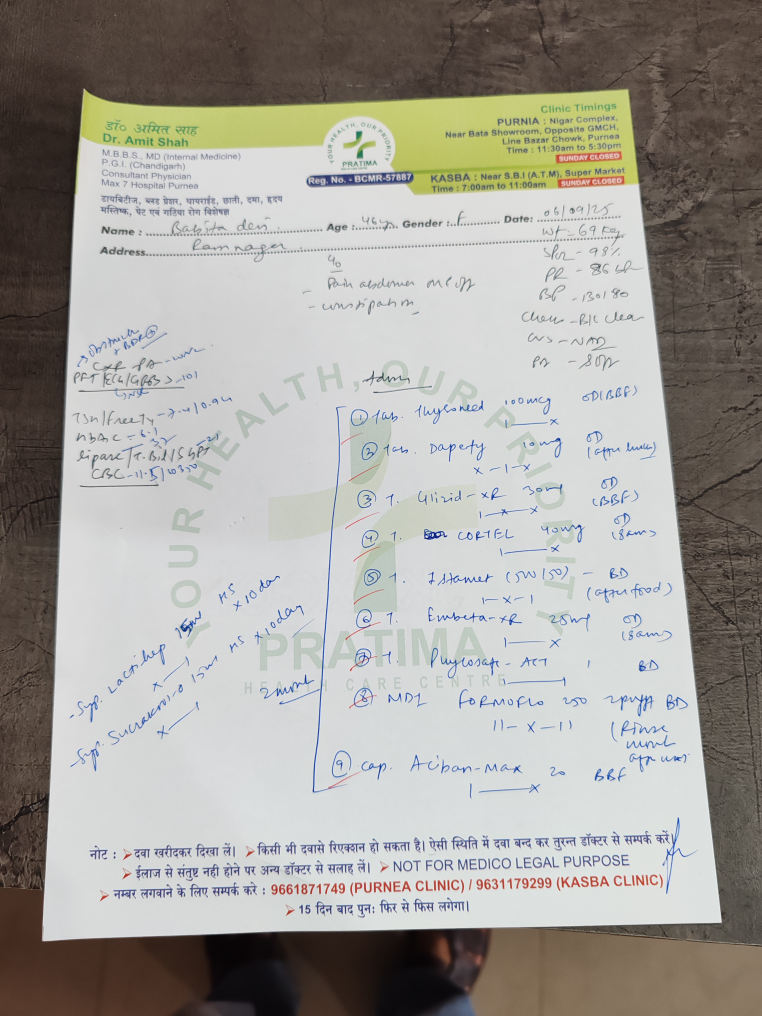 डॉ० अमित साह
Dr. Amit Shah
M.B.B.S., MD (Internal Medicine)
P.G.I. (Chandigarh)
Consultant Physician
Max 7 Hospital Purnea
डायबिटीज, ब्लड प्रेशर, थायराईड, छाती, दमा, हृदय
मस्तिष्क, पेट एवं गठिया रोग विशेषज्ञ
YOUR HEALTH, OUR PRIORITY
PRATIMA
Reg. No. - BCMR-57887
Clinic Timings
PURNIA : Nigar Complex,
Near Bata Showroom, Opposite GMCH,
Line Bazar Chowk, Purnea
Time : 11:30am to 5:30pm
SUNDAY CLOSED
KASBA : Near S.B.I (A.T.M), Super Market
Time : 7:00am to 11:00am SUNDAY CLOSED
Name : Babita devi Age : 46yr Gender : F Date: 06/09/25
Address Ramnagar
Wt - 69 kg
SPO2 - 98%
PR - 86
BP - 130/80
Chest - B/L clear
CVS - NAD
PA - Soft
C/o
- Pain abdomen on & off
- constipation
CXR PA
PFT/ECG/GRBS - 101
TSH/Free T4 - 3.4/0.94
HbA1C - 6.1
Lipase/T.Bil/SGPT
CBC - 11.5/10300
Adm
① Tab. Thyroned 100mcg OD (BBF)
1——x
② Tab. Dapefy 10mg OD
(after lunch)
x - 1 - x
③ T. Glizid-XR 30mg OD
(BBF)
1—x—x
④ T. CORTEL 40mg OD
(8am)
1——x
⑤ T. Istamet (500/50) - BD
(after food)
1 - x - 1
⑥ T. Embeta-XR 25mg OD
(8am)
1——x
⑦ T. - ACT 1 BD
1——1
⑧ MDI FORMOFLO 250 2puff BD
11 - x - 11
(Rinse
mouth
after use)
⑨ Cap. Aciban-Max 20 BBF
1——x
- Syp. Lactihep 15ml HS x10day
x——1
- Syp. 15ml HS x10day
x——1
2 mont
YOUR HEALTH, OUR PRIORITY
PRATIMA
HEALTH CARE CENTRE
नोट : ➤दवा खरीदकर दिखा लें। ➤किसी भी दवासे रिएक्शन हो सकता है। ऐसी स्थिति में दवा बन्द कर तुरन्त डॉक्टर से सम्पर्क करें।
➤ईलाज से संतुष्ट नही होने पर अन्य डॉक्टर से सलाह लें। ➤NOT FOR MEDICO LEGAL PURPOSE
➤नम्बर लगवाने के लिए सम्पर्क करे : 9661871749 (PURNEA CLINIC) / 9631179299 (KASBA CLINIC)
➤15 दिन बाद पुनः फिर से फिस लगेगा।